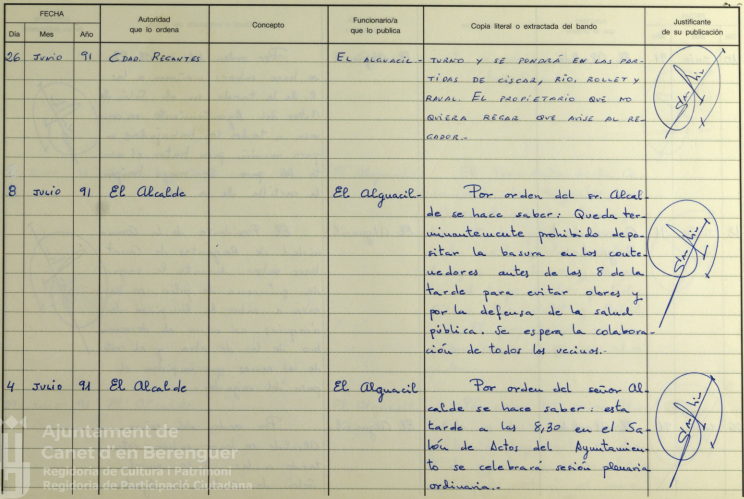 FECHA
Autoridad
que lo ordena
Concepto
Funcionario/a
que lo publica
Copia literal o extractada del bando
Justificante
de su publicación
Día Mes Año
26 JUNIO 91 CDAD. REGANTES EL ALGUACIL - TURNO Y SE PONDRÁ EN LAS PAR-
TIDAS DE CISCAR, RÍO, ROLLET Y
RAVAL. EL PROPIETARIO QUE NO
QUIERA REGAR QUE AVISE AL RE-
GADOR.-
8 JULIO 91 El Alcalde El Alguacil- Por orden del sr. Alcal-
de se hace saber: Queda ter-
minantemente prohibido depo-
sitar la basura en los conte-
nedores antes de las 8 de la
tarde para evitar olores y
por la defensa de la salud
pública. Se espera la colabora-
ción de todos los vecinos.-
4 JULIO 91 El Alcalde El Alguacil Por orden del señor Al-
calde se hace saber: esta
tarde a las 8,30 en el Sa-
lón de Actos del Ayuntamien-
to se celebrará sesión plenaria
ordinaria.-
Ajuntament de
Canet d'en Berenguer
Regidoria de Cultura i Patrimoni
Regidoria de Participació Ciutadana